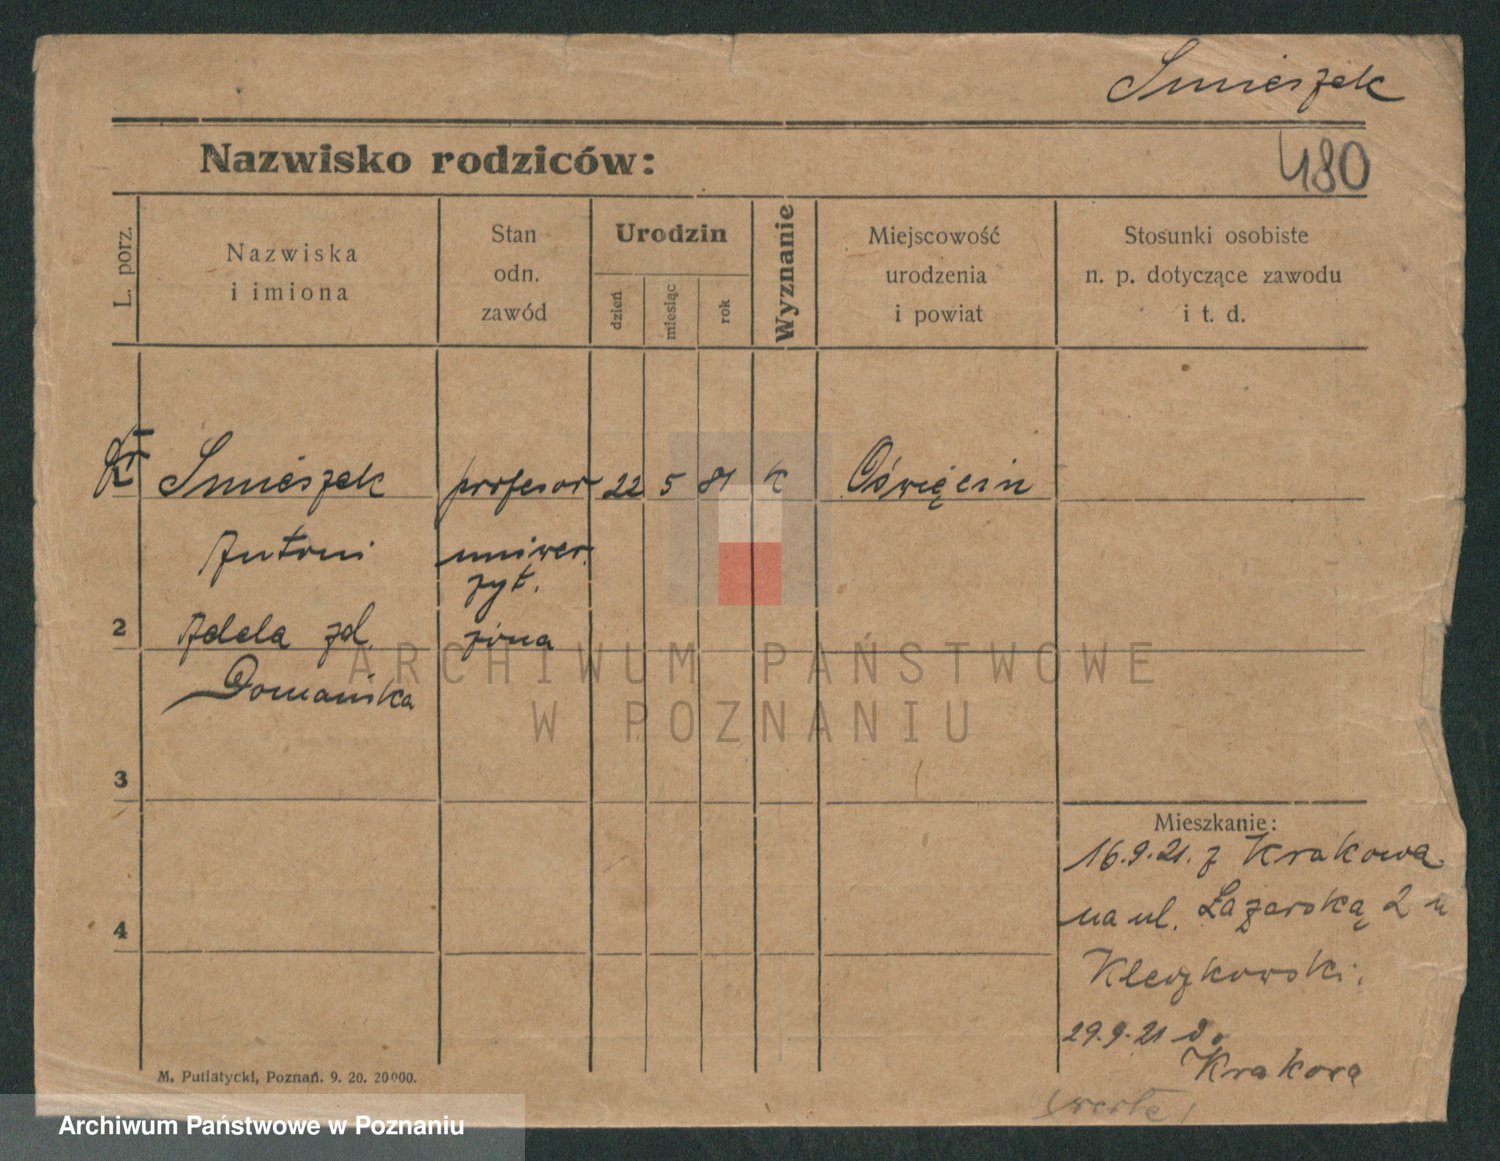 Śmieszek
480
Nazwisko rodziców:
L. porz.
Nazwiska
i imiona
Stan
odn.
zawód
Urodzin
dzień
miesiąc
rok
Wyznanie
Miejscowość
urodzenia
i powiat
Stosunki osobiste
n. p. dotyczące zawodu
i t. d.
Śmieszek profesor 22 5 81 k Oświęcim
Antoni uniwer.
zyt.
2 Adela zd. żona
Domańska
ARCHIWUM PAŃSTWOWE
W POZNANIU
3
Mieszkanie:
16.9.21. z Krakowa
na ul. Łazarską 2 u
Kleczkowski.
4
29.9.21 do
Krakowa
(verte)
M. Putiatycki, Poznań. 9. 20. 20000.
Archiwum Państwowe w Poznaniu